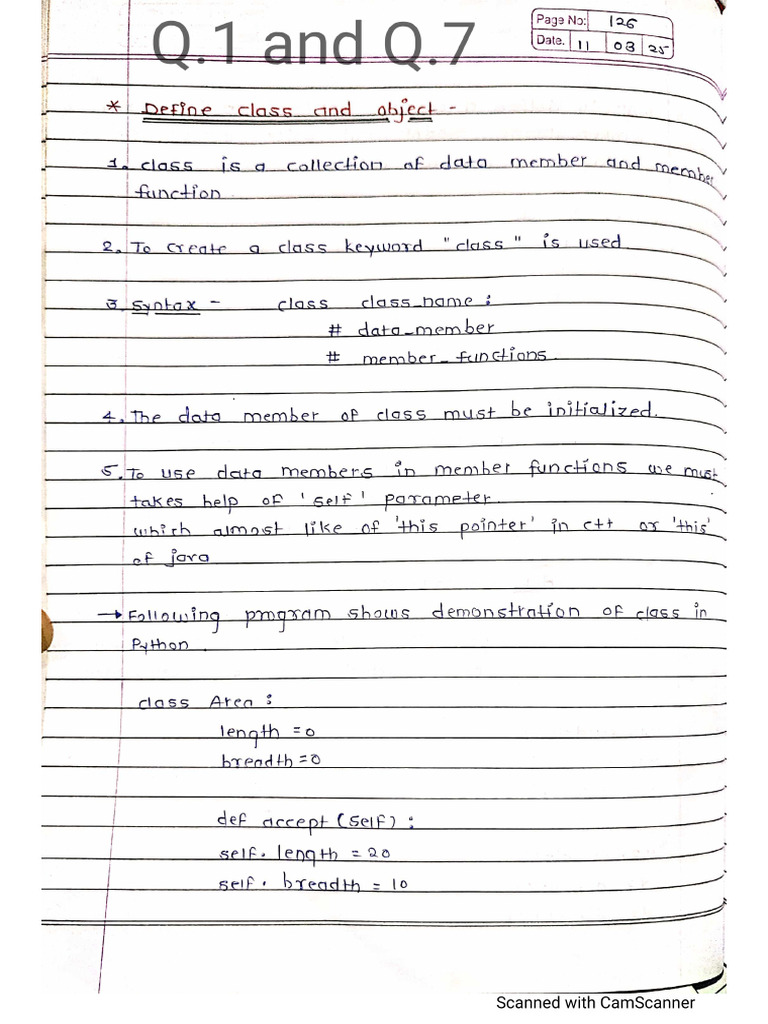 Q.1 and Q.7
Page No: 126
Date. 11 03 25
* Define class and object -
1. class is a collection of data member and member
function
2. To create a class keyword "class" is used
3. syntax - class class_name :
# data_member
# member_functions
4. The data member of class must be initialized.
5. To use data members in member functions we must
takes help of 'self' parameter
which almost like of 'this pointer' in c++ or 'this'
of java
→ Following program shows demonstration of class in
Python.
class Area :
length = 0
breadth = 0
def accept (self) :
self. length = 20
self. breadth = 10
Scanned with CamScanner